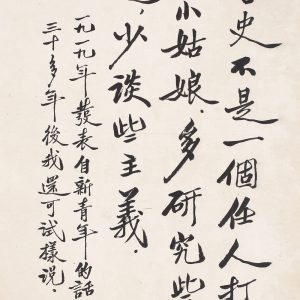 史不是一個任人打
小姑娘.多研究些
少談些主義.
一九一九年發表自新青年的話
三十多年後我還可這樣說.